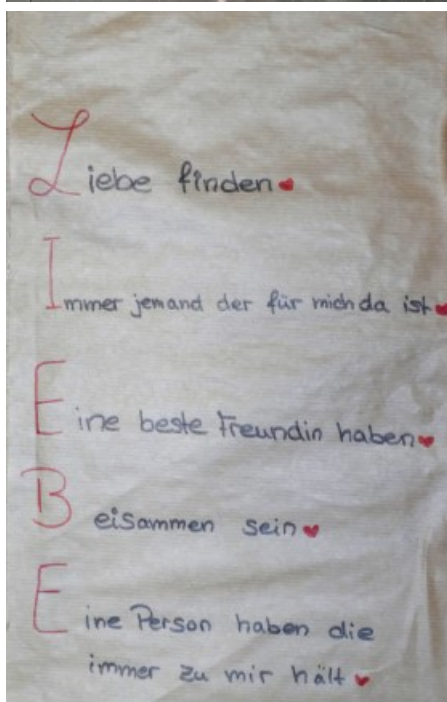 Liebe finden
Immer jemand der für mich da ist
Eine beste Freundin haben
Beisammen sein
Eine Person haben die
immer zu mir hält